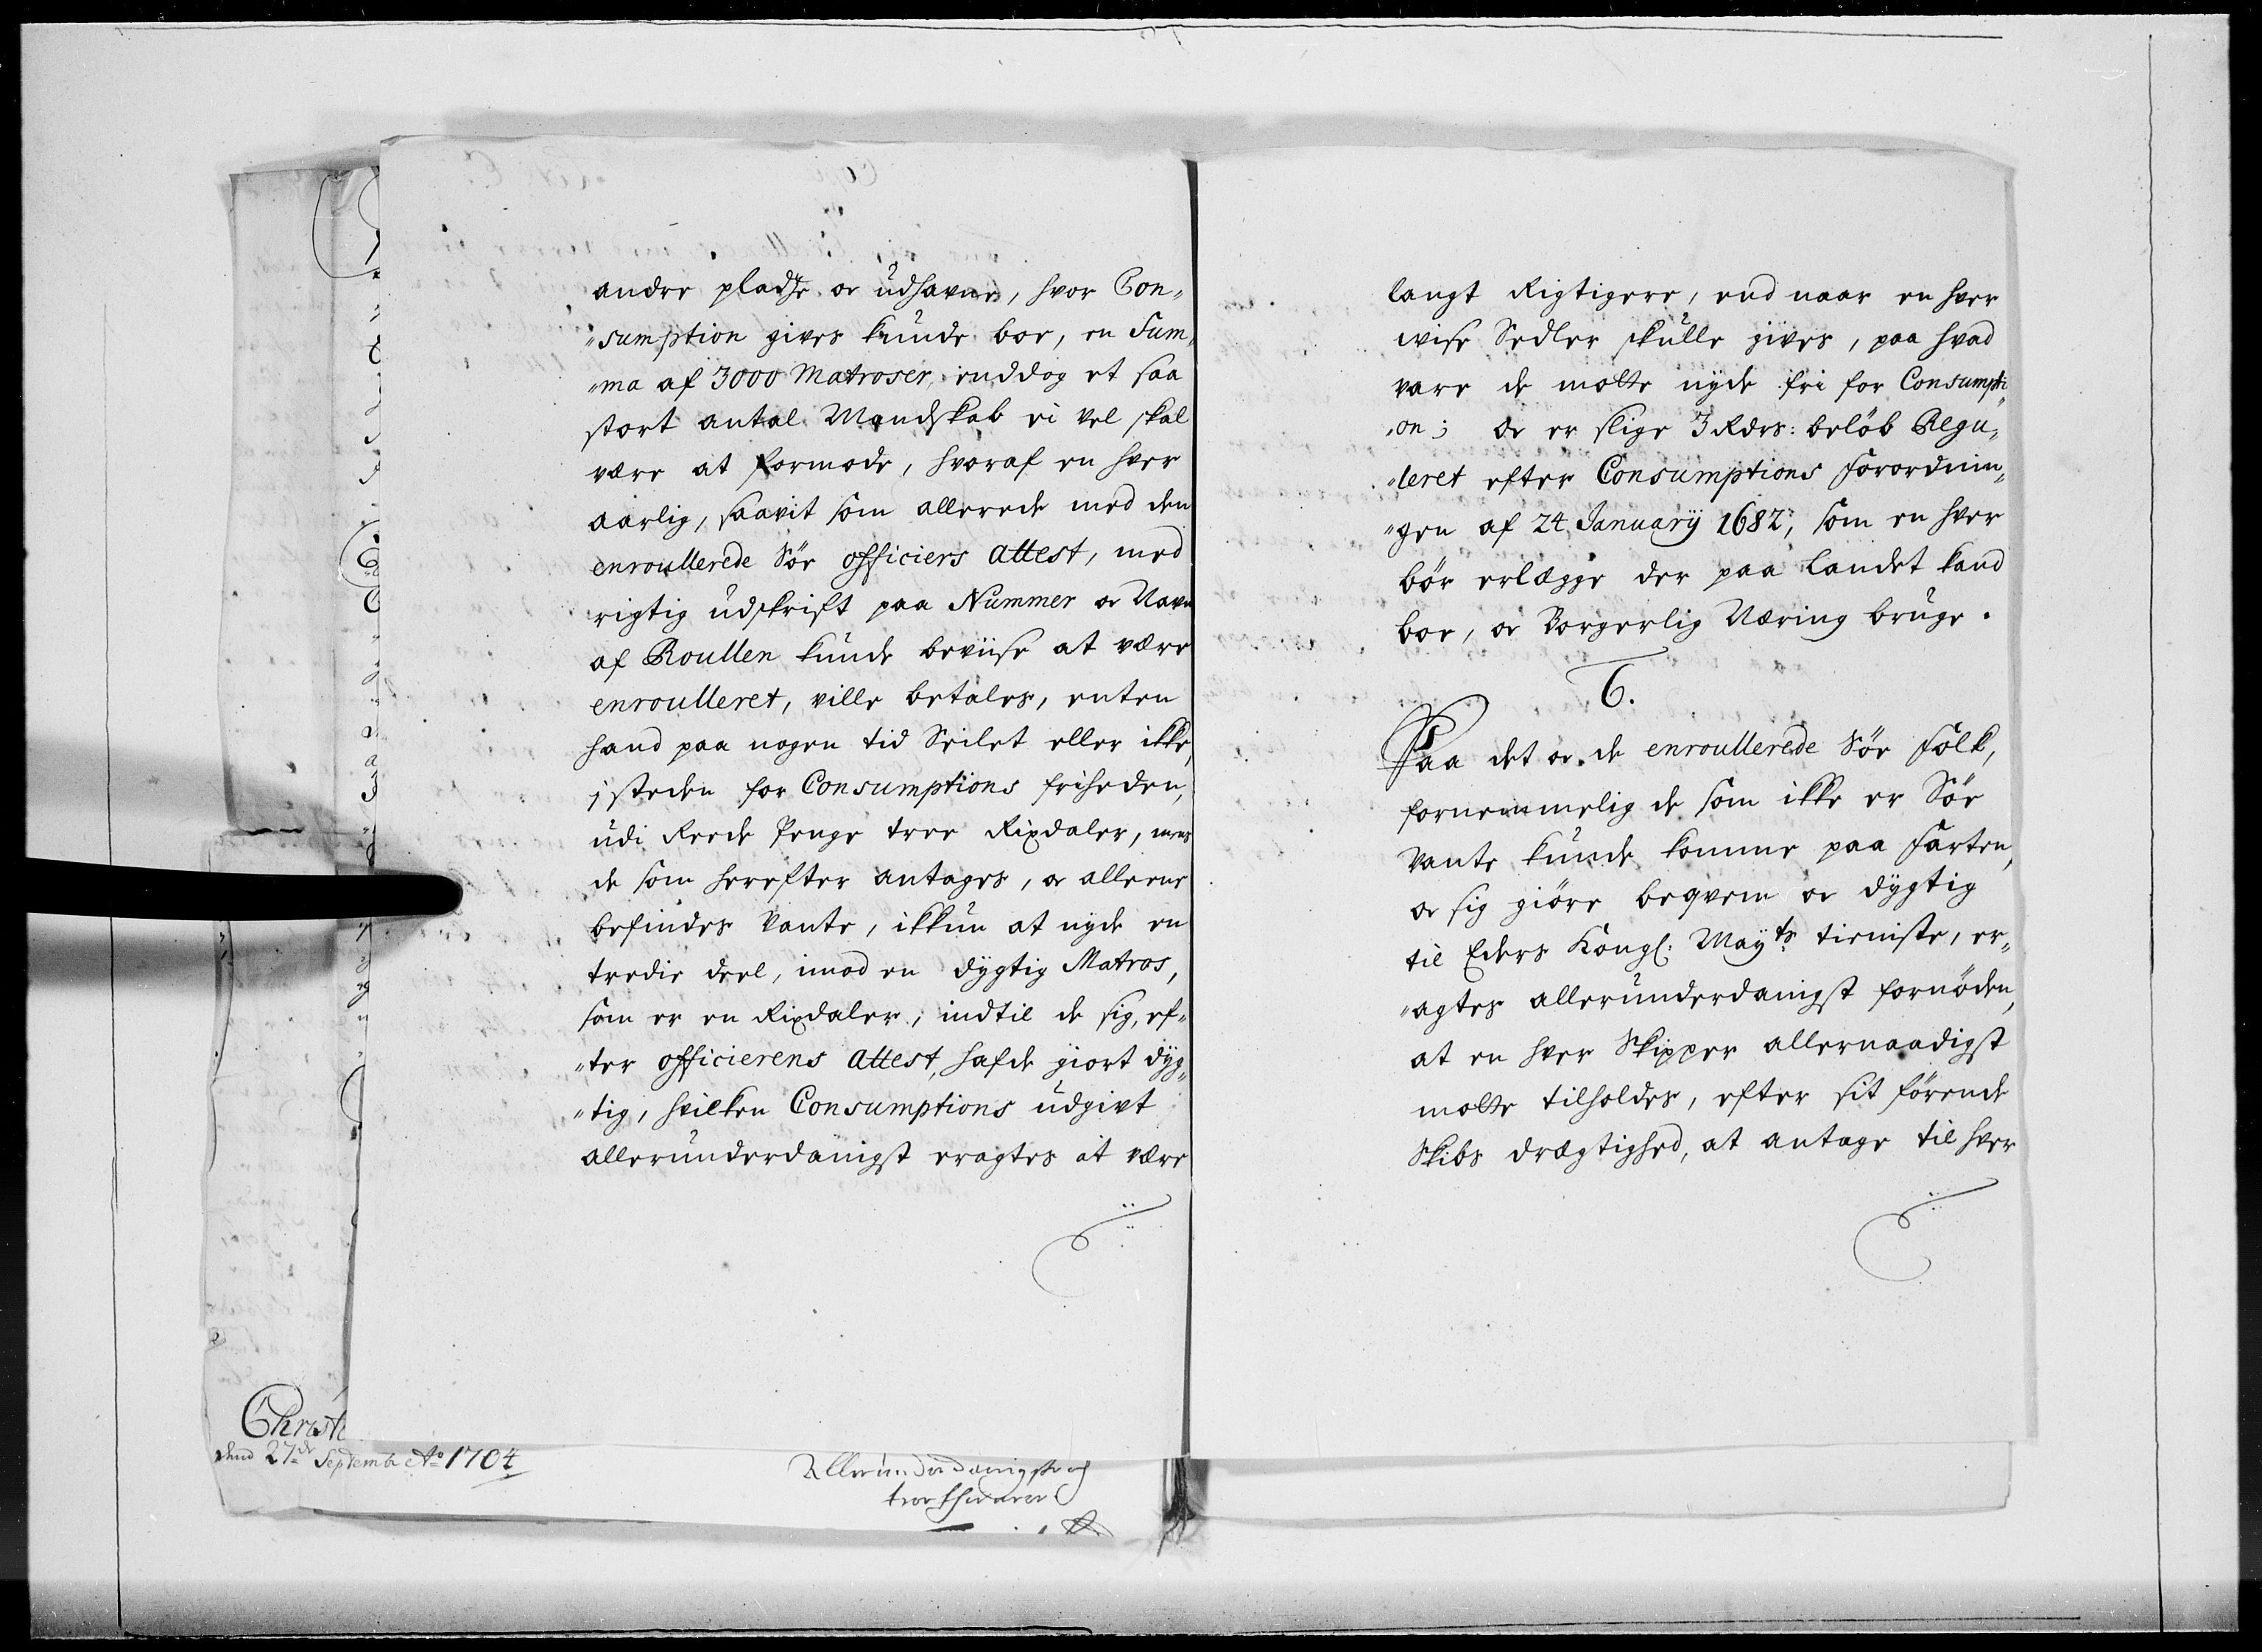 andre pladtze oc udhavne, hvor Con„
„sumption gives kunde boe, en Sum„
„ma af 3000 Matroser, enddog et saa
stort antal Mandskab ei vel skal
være at formode, hvoraf en hver
aarlig, saavit som allerede med den
enroullerede Söe officiers attest, med
rigtig udskrift paa Nummer oc Navn
af Roullen kunde beviise at være
enroulleret, ville betales, enten
hand paa nogen tid Seilet eller ikke,
i steden for Consumptions friheden,
udi Reede Penge tree Rixdaler, mens
de som herefter antages, oc alleene
befindes vante, ikkun at nyde en
tredie deel, imod en dygtig Matros,
som er en Rixdaler, indtil de sig, ef„
„ter officierens attest, hafde giort dyg„
„tig, hvilken Consumptions udgivt
allerunderdanigst eragtes at være
langt Rigtigere, end naar en hver
wise Sedler skulle gives, paa hvad
vare de motte nyde fri for Consumpti„
„on; Oc er slige 3 Rdrs: belöb Regu„
„leret efter Consumptions Forordnin„
„gen af 24 Januarÿ 1682, som en hver
bör erlægge der paa Landet kand
boe, oc Borgerlig Næring bruge.
6.
Paa det oc de enroullerede Söe Folk,
fornemmelig de som ikke er Söe
vante kunde komme paa Farten,
oc sig giöre beqvem oc dygtig
til Eders Kongl: Mayts tieniste, er„
„agtes allerunderdanigst fornöden,
at en hver Skipper allernaadigst
motte tilholdes, efter sit förende
Skibs drægtighed, at antage til hver
Christ
dend 27de Septemb: Ao 1704
Allerunderdanigste og